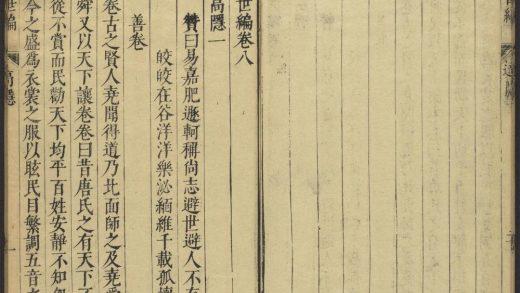 世編卷八
高隱一
贊曰易嘉肥遯軻稱尚志避世避人不有
皎皎在谷洋洋樂泌緬維千載孤
善卷
卷古之賢人堯聞得道乃北面師之及堯受
舜又以天下讓卷卷曰昔唐氏之有天下不
從不賞而民勸天下均平百姓安靜不知
今之盛為衣裳之服以眩民目繁調五音之
世編 高隱 一